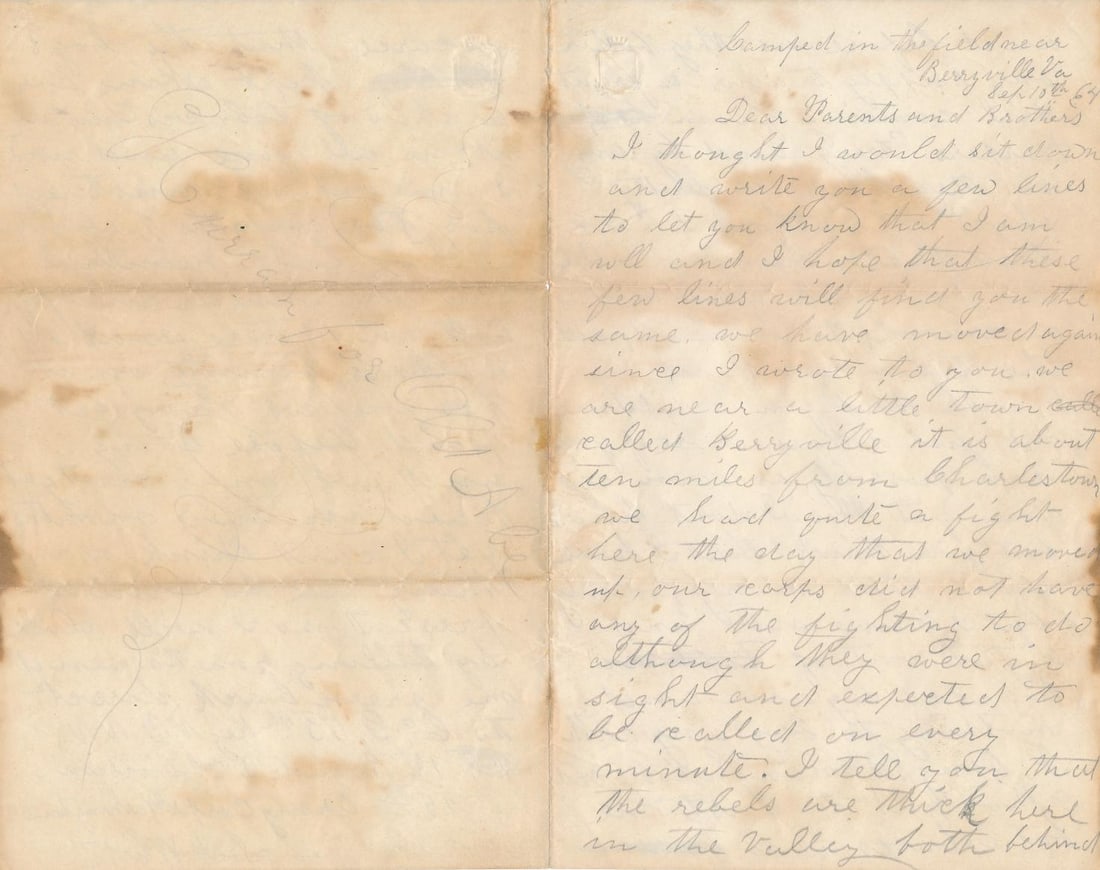 Camped in the field near
Berryville Va
Sep 10th 64
Dear Parents and Brothers
I thought I would sit down
and write you a few lines
to let you know that I am
well and I hope that these
few lines will find you the
same. we have moved again
since I wrote to you. we
are near a little town
called Berryville it is about
ten miles from Charlestown
we had quite a fight
here the day that we moved
up. our corps did not have
any of the fighting to do
although they were in
sight and expected to
be called on every
minute. I tell you that
the rebels are thick here
in the valley both behind